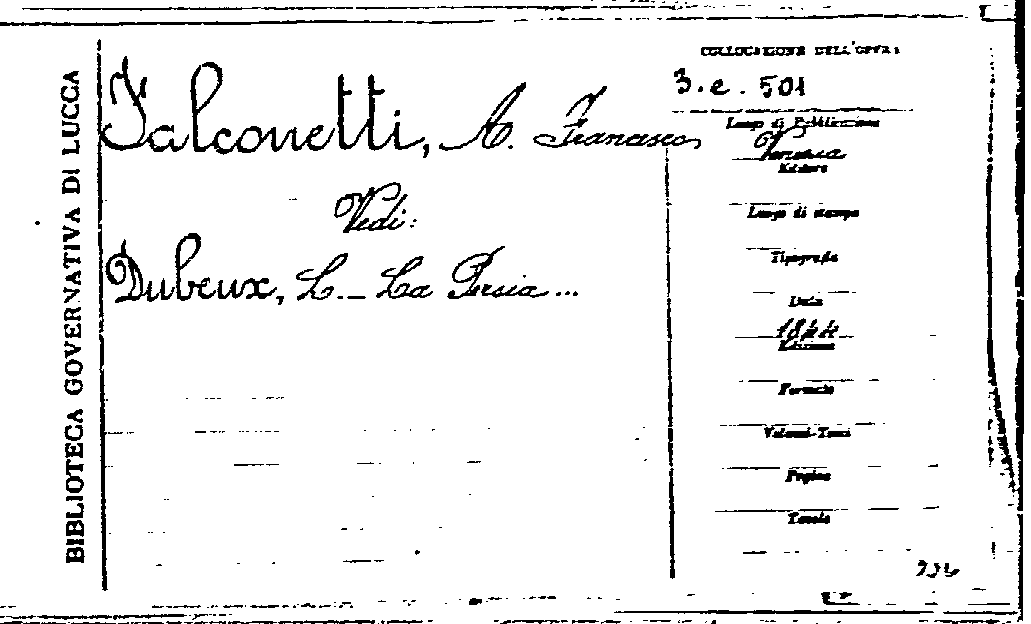 BIBLIOTECA GOVERNATIVA DI LUCCA
Falconetti, A. Francesco
Vedi:
Dubeux, L. - La Persia...
COLLOCAZIONE DELL'OPERA
3.e.501
Luogo di Pubblicazione
Venezia
Editore
Luogo di stampa
Tipografia
Data
1844
Edizione
Formato
Volumi-Tomi
Pagine
Tavole